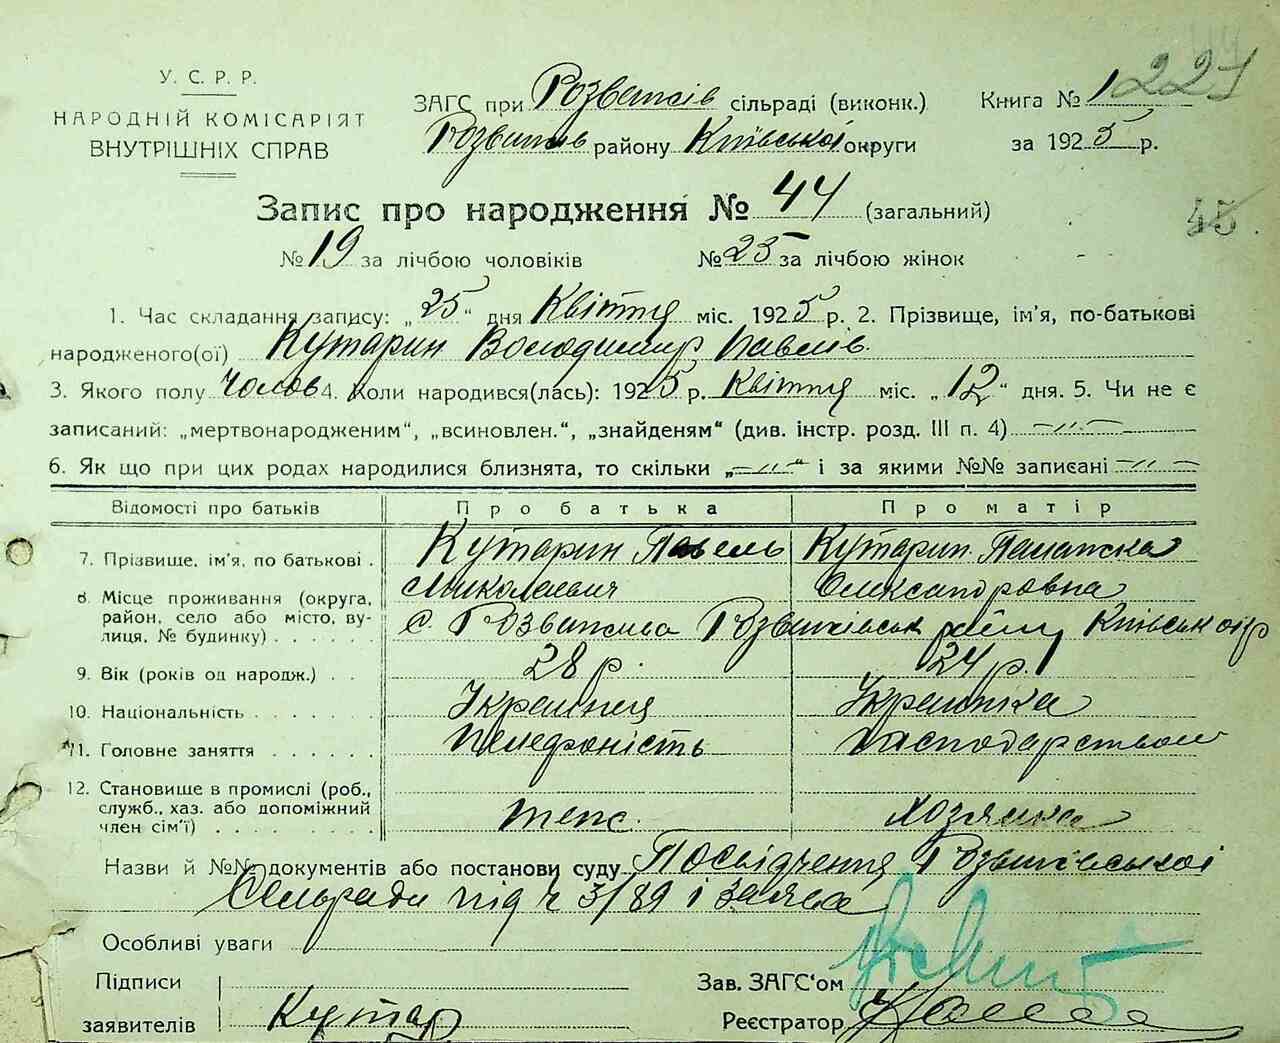 У. С. Р. Р.
НАРОДНІЙ КОМІСАРІЯТ
ВНУТРІШНІХ СПРАВ
ЗАГС при Розважів сільраді (виконк.)
Книга № 1
221
Розважів району Київської округи
за 1925 р.
Запис про народження № 44 (загальний)
45
№ 19 за лічбою чоловіків
№ 25 за лічбою жінок
1. Час складання запису: „25“ дня Квітня міс. 1925 р. 2. Прізвище, ім'я, по-батькові
народженого(ої) Кутарин Володимир Павлів
3. Якого полу Чолов 4. Коли народився(лась): 1925 р. Квітня міс. „12“ дня. 5. Чи не є
записаний: „мертвонародженим“, „всиновлен.“, „знайденям“ (див. інстр. розд. III п. 4) —„—
6. Як що при цих родах народилися близнята, то скільки „—„—“ і за якими №№ записані —„—
Відомості про батьків
Про батька
Про матір
7. Прізвище, ім'я, по батькові .
Кутарин Павель
Миколаевич
Кутарин
Олександровна
8. Місце проживання (округа,
район, село або місто, ву-
лиця, № будинку) . . . . . .
с Розважева Розважівськ району Київськ окр
9. Вік (років од народж.) . .
28 р.
24 р.
10. Національність . . . . . . .
Українец
Українка
11. Головне заняття . . . . . .
Телефоність
Господарством
12. Становище в промислі (роб.,
служб., хаз. або допоміжний
член сім'ї) . . . . . . . . .
Хозяйка
Назви й №№ документів або постанови суду Посвідчення Розважівської
Сельради під ч 3/89 і заява
Особливі уваги
Підписи
заявителів
Кутар
Зав. ЗАГС'ом
Реєстратор